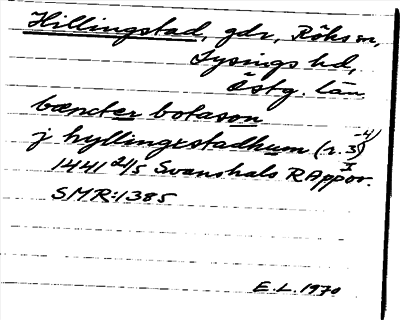 Hillingstad, gdr, Röks sn,
Lysings hd,
Östg. län
bændter botason
j hyllingxstadhum (r. 3)
-4)
1441 24/5 Svanshals RAppor.
SMR:1385
E.L. 1970